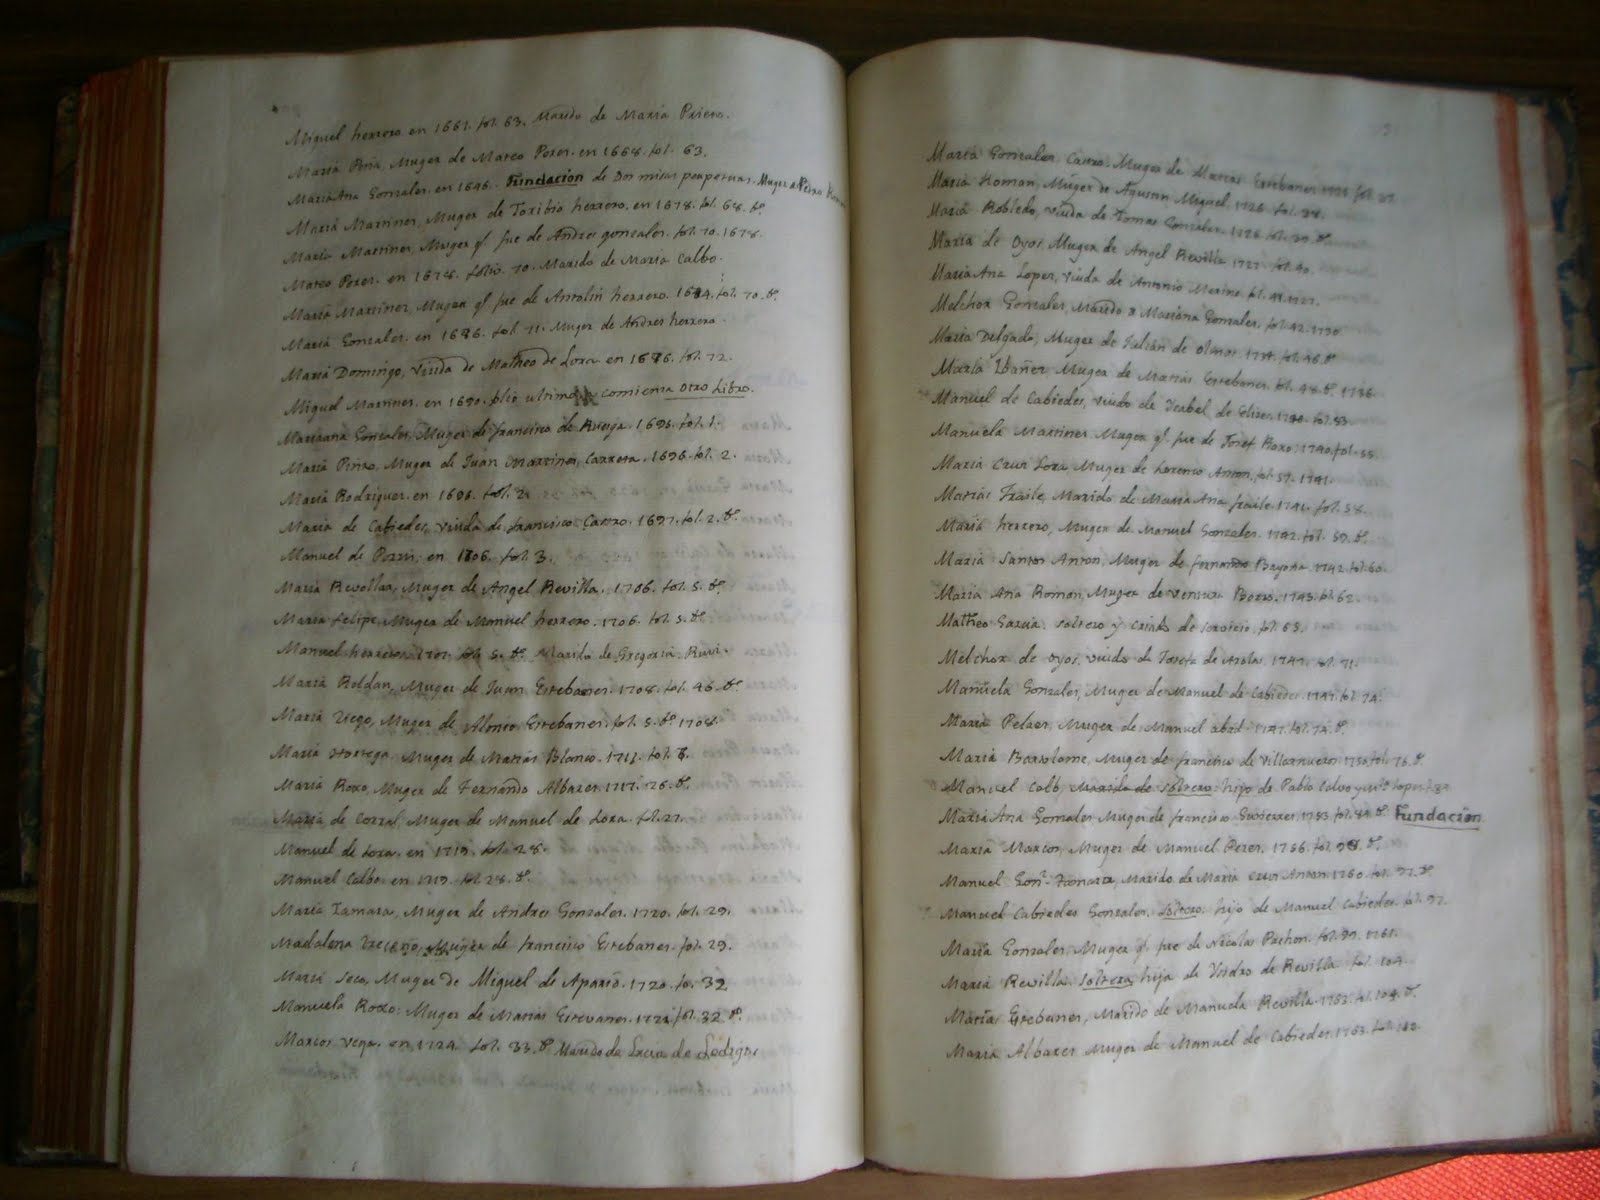 Miguel herrero en 1661. fol. 63. Marido de Maria Priero.
Maria Peña, Muger de Marco Perez. en 1668. fol. 63.
MariaAna Gonzalez. en 1696. Fundacion de Dos misas perpetuas. Muger de Pedro
Maria Martinez, Muger de Toribio herrero. en 1678. fol. 68. bº
Maria Martinez, Muger qᵉ fue de Andres gonzalez. fol. 70. 1678.
Marco Perez. en 1678. folio. 70. Marido de Maria Calbo.
Maria Martinez, Muger qᵉ fue de Antolin herrero. 1684. fol. 70. bº
Maria Gonzalez. en 1686. fol. 71. Muger de Andres herrero.
Maria Domingo, Viuda de Matheo de Lora en 1686. fol. 72.
Miguel Martinez. en 1690. folio ultimo comienza otro Libro.
Mariana Gonzalez, Muger de francisco de Rueza. 1695. fol. 1.
Maria Pinto, Muger de Juan Martinez, Carrera. 1696. fol. 2.
Maria Rodriguez. en 1696. fol. 2.
Maria de Cabiedes, viuda de francisco Castro. 1697. fol. 2. bº
Manuel de Porris, en 1706. fol. 3.
Maria Revollar, Muger de Angel Revilla. 1706. fol. 5. bº
Maria felipe, Muger de Manuel herrero. 1706. fol. 5. bº
Manuel herrero. 1707. fol. 5. bº Marido de Gregoria Ruvi.
Maria Roldan, Muger de Juan Estebanez. 1708. fol. 46. bº
Maria Diego, Muger de Alonso Estebanez. fol. 5. bº 1708.
Maria Hortega, Muger de Matias Blanco. 1711. fol. 8.
Maria Roxo, Muger de Fernando Albarez. 1717. 26. bº
Maria de Corral, Muger de Manuel de Lora. fol. 27.
Manuel de Lora. en 1719. fol. 28.
Manuel Calbo. en 1719. fol. 28. bº
Maria Tamara, Muger de Andres Gonzalez. 1720. fol. 29.
Madalena Treceño, Muger de francisco Estebanez. fol. 29.
Maria Seco, Muger de Miguel de Aparizio. 1720. fo. 32
Manuela Roxo: Muger de Matias Estevanez. 1722. fol. 32 bº
Marcos Vega. en 1724. fol. 33. bº Marido de Lucia de Lodiga.
Maria Gonzalez Castro. Muger de Marcos Estebanez 1725 fol. 37.
Maria Roman, Muger de Agustin Miguel. 1726. fol. 38.
Maria Robledo, viuda de Tomas Gonzalez. 1726. fol. 39. bº
Maria de Oyos, Muger de Angel Revilla. 1727. fol. 40.
MariaAna Lopez, viuda de Antonio Merino. fol. 41. 1727.
Melchor Gonzalez, Marido de Mariana Gonzalez. fol. 42. 1730
Maria Delgado, Muger de Julian de Olmos. 1734. fol. 46. bº
Maria Ibañez. Muger de Matias Estebanez. fol. 48. bº 1736.
Manuel de Cabiedes, viudo de Ysabel de Elices. 1740. fol. 53.
Manuela Martinez Muger qᵉ fue de Josef Roxo. 1740. fol. 55.
Maria Cruz Lora Muger de Lorenzo Anton. fol. 57. 1741.
Matias Fraile, Marido de MariaAna fraile. 1741. fol. 58.
Maria herrero, Muger de Manuel Gonzalez. 1742. fol. 59. bº
Maria Santos Anton, Muger de fernando Bayona. 1742. fol. 60.
Maria Ana Roman, Muger de Ventura Borro. 1743. fol. 62.
Matheo Garcia. soltero y criado de servicio. fol. 63.
Melchor de Oyos, viudo de Josefa de Arola. 1747. fol. 71.
Manuela Gonzalez, Muger de Manuel de Cabiedes. 1747. fol. 74.
Maria Pelaez, Muger de Manuel abad. 1747. fol. 74. bº
Maria Bartolome, Muger de francisco de Villanueva. 1750. fol. 76. bº
Manuel Calb, Marido de soltero: hijo de Pablo Calvo y Mª Lopez
MariaAna Gonzalez Muger de francisco Gutierrez. 1753. fol. 84. bº Fundacion
Maria Marcos, Muger de Manuel Perez. 1756. fol. 98. bº
Manuel Gonz. Tamara, Marido de Maria Cruz Anton. 1760. fol. 97. bº
Manuel Cabiedes Gonzalez, soltero: hijo de Manuel Cabiedes. fol. 97.
Maria Gonzalez, Muger qᵉ fue de Nicolas Pachon. fol. 99. 1761.
Maria Revilla. soltera hija de Ysidro de Revilla fol. 104.
Matias Estebanez, Marido de Manuela Revilla. 1763. fol. 104. bº
Maria Albarez Muger de Manuel de Cabiedes. 1763. fol.